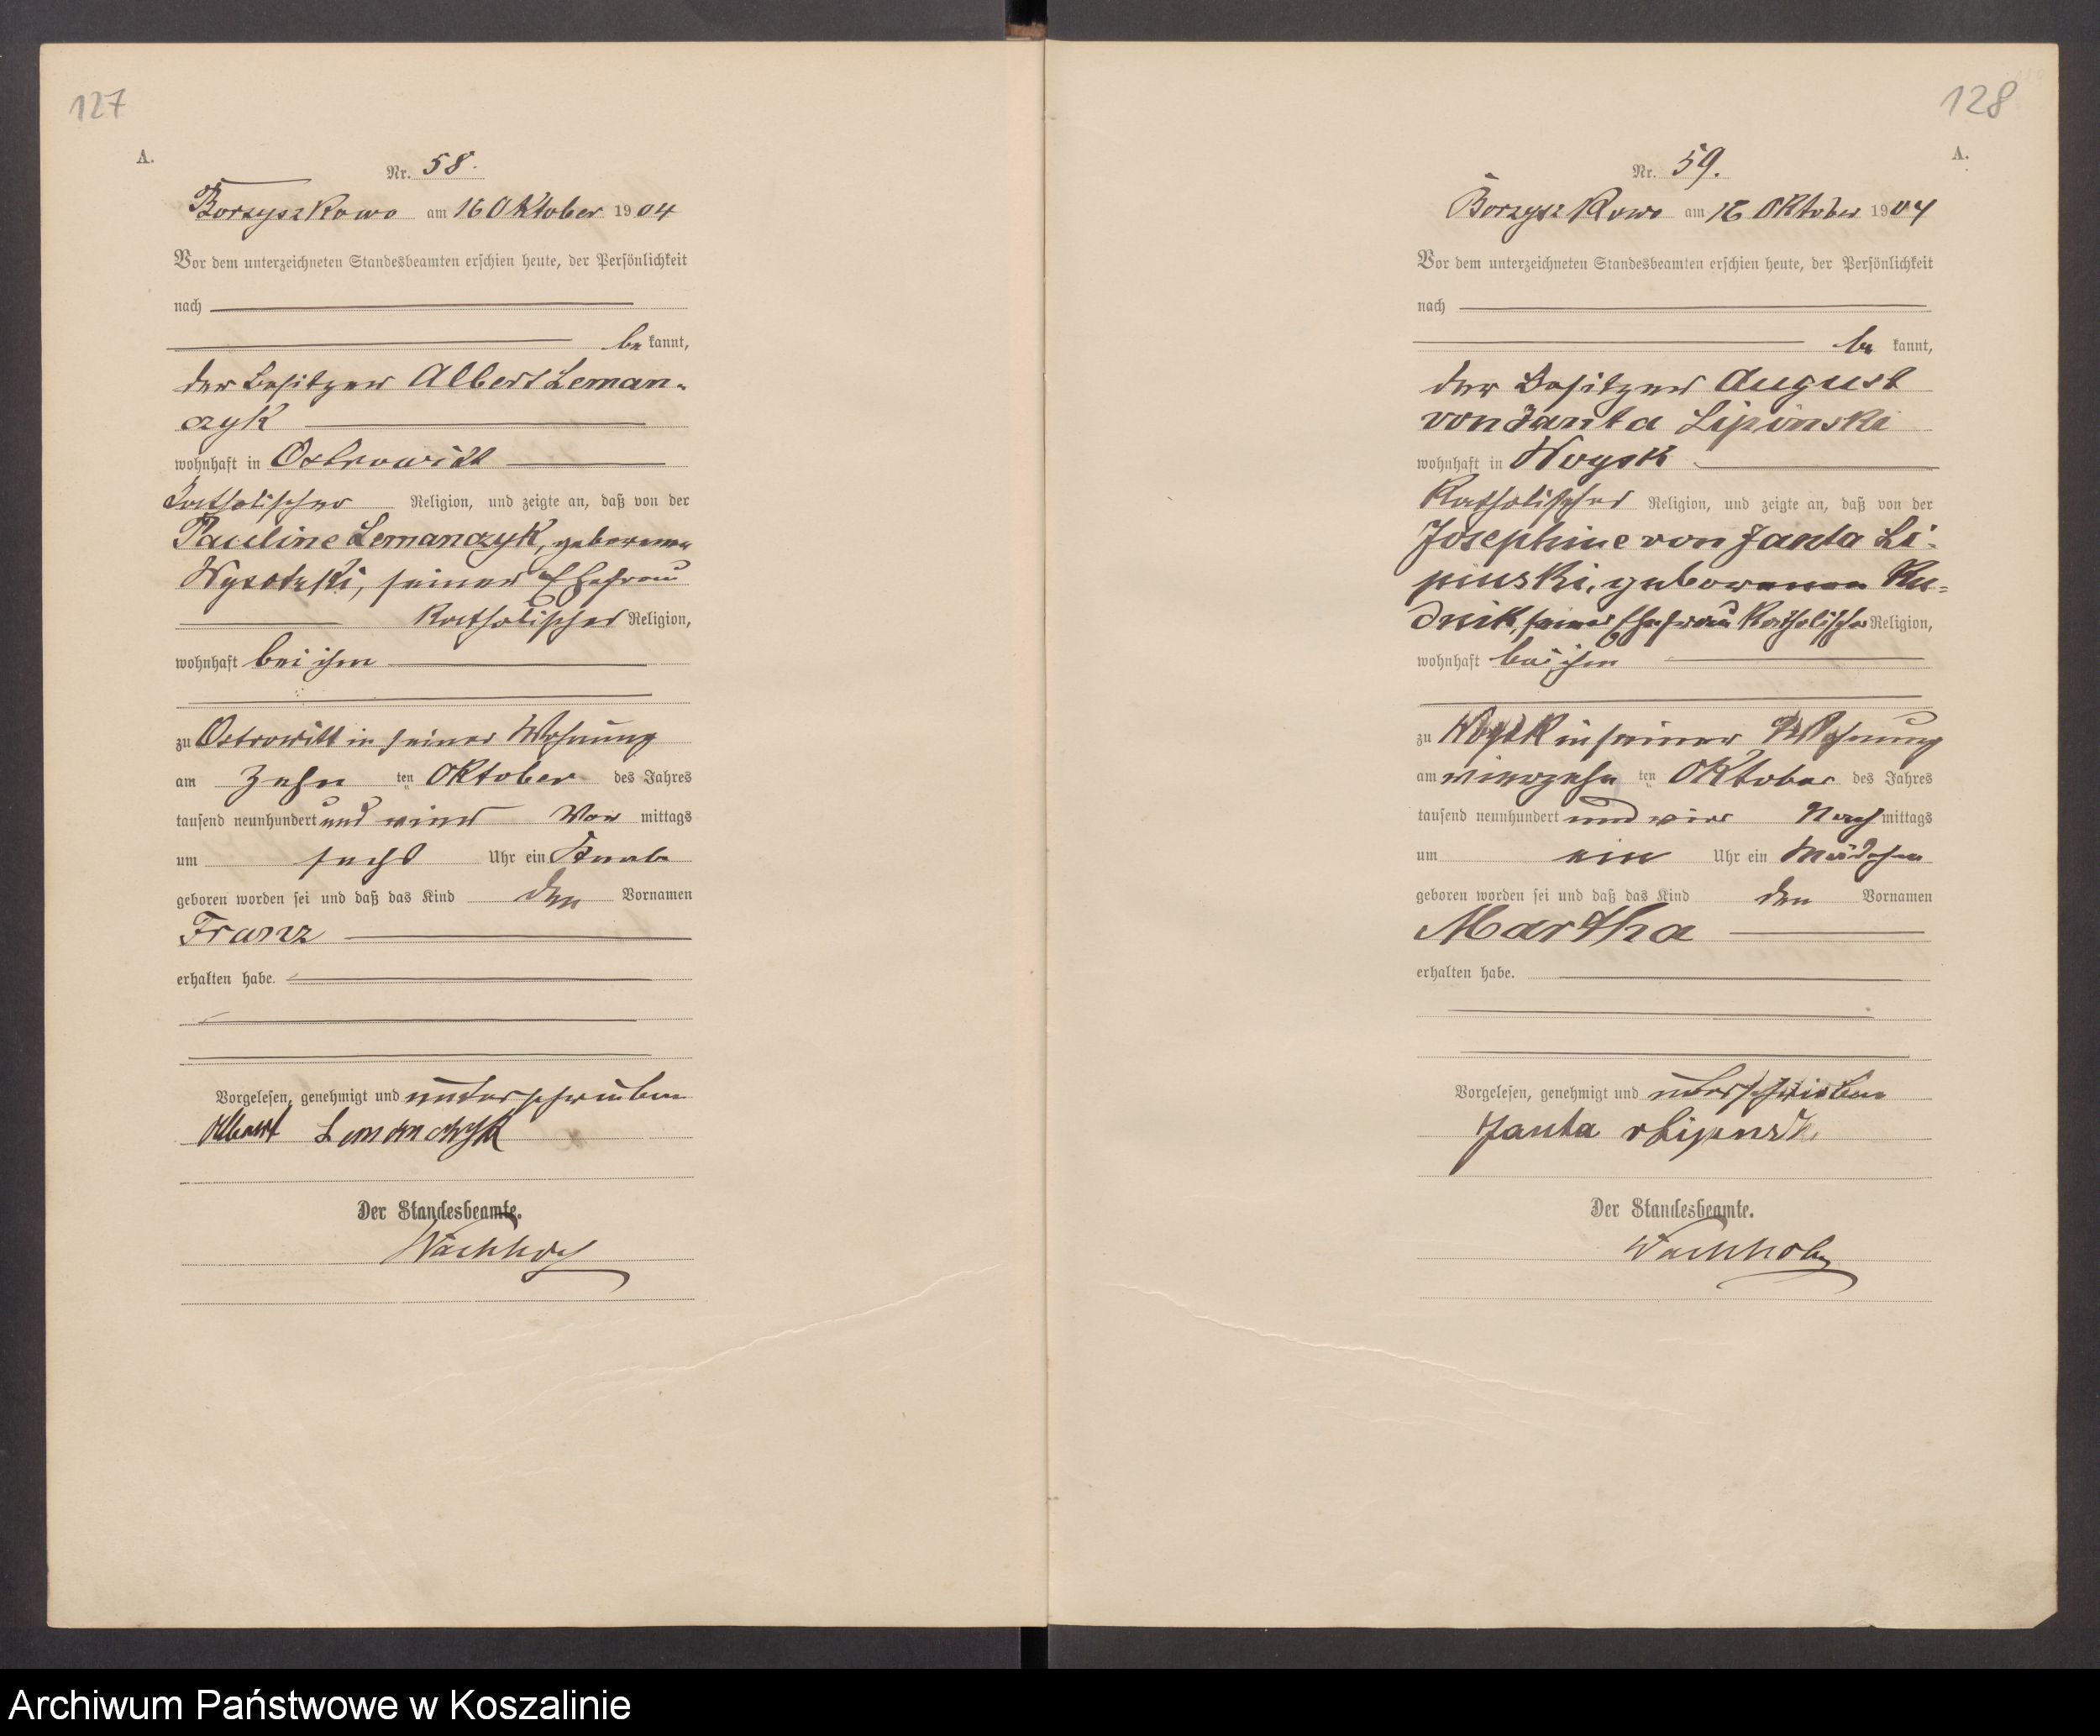 127
A.
Nr. 58.
Borzyszkowo am 16 Oktober 1904
Vor dem unterzeichneten Standesbeamten erschien heute, der Persönlichkeit
nach
be kannt,
der Besitzer Albert Leman-
czyk
wohnhaft in Ostrowitt
katholischer Religion, und zeigte an, daß von der
Pauline Lemanczyk, geborenen
Wysotzki, seiner Ehefrau
katholischer Religion,
wohnhaft bei ihm
zu Ostrowitt in seiner Wohnung
am zehn ten Oktober des Jahres
tausend neunhundert und vier Vor mittags
um sechs Uhr ein Knabe
geboren worden sei und daß das Kind den Vornamen
Franz
erhalten habe.
Vorgelesen, genehmigt und unterschrieben
Albert Lemanczyk
Der Standesbeamte.
128
A.
Nr. 59.
Borzyszkowo am 16 Oktober 1904
Vor dem unterzeichneten Standesbeamten erschien heute, der Persönlichkeit
nach
be kannt,
der Besitzer August
von Janta Lipinski
wohnhaft in Woysk
katholischer Religion, und zeigte an, daß von der
Josephine von Janta Li-
pinski, geborenen Ru-
dnik, seiner Ehefrau katholischer Religion,
wohnhaft bei ihm
zu Woysk in seiner Wohnung
am vierzehn ten Oktober des Jahres
tausend neunhundert und vier Nach mittags
um ein Uhr ein Mädchen
geboren worden sei und daß das Kind den Vornamen
Martha
erhalten habe.
Vorgelesen, genehmigt und unterschrieben
Janta v Lipinski
Der Standesbeamte.
Archiwum Państwowe w Koszalinie